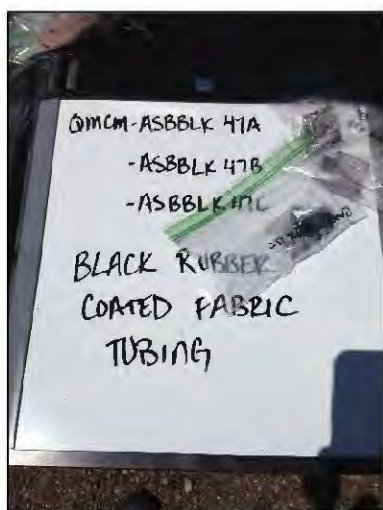 QMCM-ASBBLK 47A
-ASBBLK 47B
-ASBBLK 47C
BLACK RUBBER
COATED FABRIC
TUBING